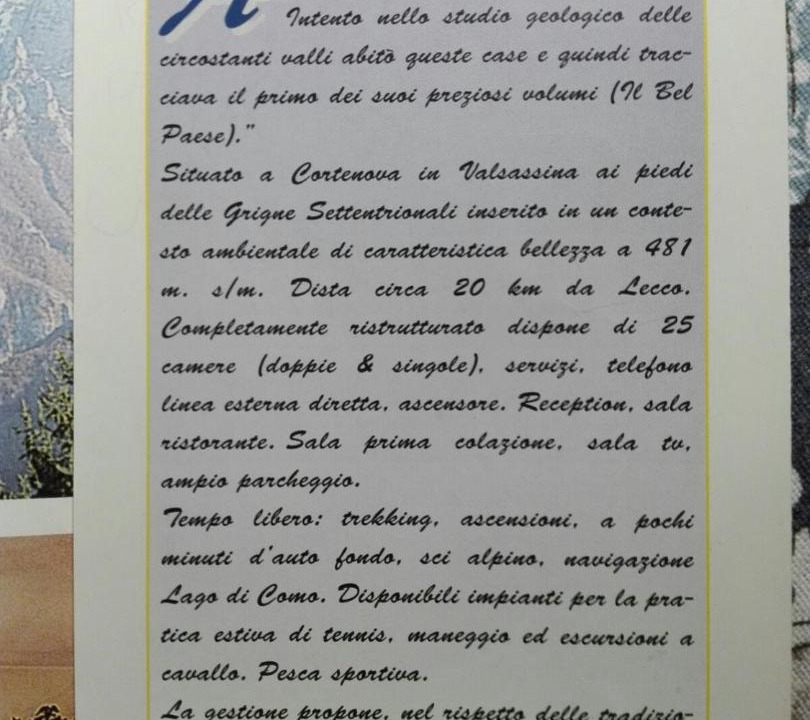 A
Intento nello studio geologico delle
circostanti valli abitò queste case e quindi trac-
ciava il primo dei suoi preziosi volumi (Il Bel
Paese)."
Situato a Cortenova in Valsassina ai piedi
delle Grigne Settentrionali inserito in un conte-
sto ambientale di caratteristica bellezza a 481
m. s/m. Dista circa 20 km da Lecco.
Completamente ristrutturato dispone di 25
camere (doppie & singole), servizi, telefono
linea esterna diretta, ascensore. Reception, sala
ristorante. Sala prima colazione, sala tv,
ampio parcheggio.
Tempo libero: trekking, ascensioni, a pochi
minuti d'auto fondo, sci alpino, navigazione
Lago di Como. Disponibili impianti per la pra-
tica estiva di tennis, maneggio ed escursioni a
cavallo. Pesca sportiva.
La gestione propone, nel rispetto delle tradizio-